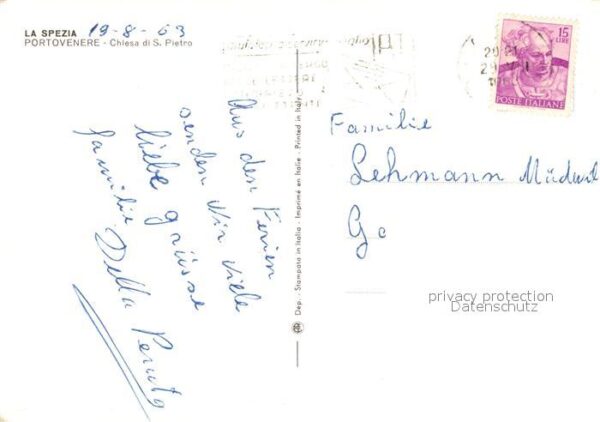 LA SPEZIA 19-8-63
PORTOVENERE - Chiesa di S. Pietro
Aus den Ferien
senden Wir Viele
liebe grüsse
familie Della Peruta
Dep. - Stampato in Italia - Imprimé en Italie - Printed in Italy
15
LIRE
POSTE ITALIANE
Familie
Lehmann
Ge
privacy protection
Datenschutz